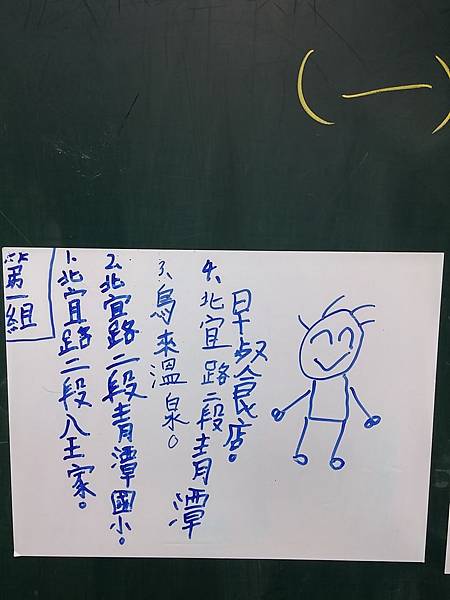 (一)
第一組
1、北宜路二段八王家。
2、北宜路二段青潭國小。
3、烏來溫泉。
4、北宜路二段青潭
早餐店。